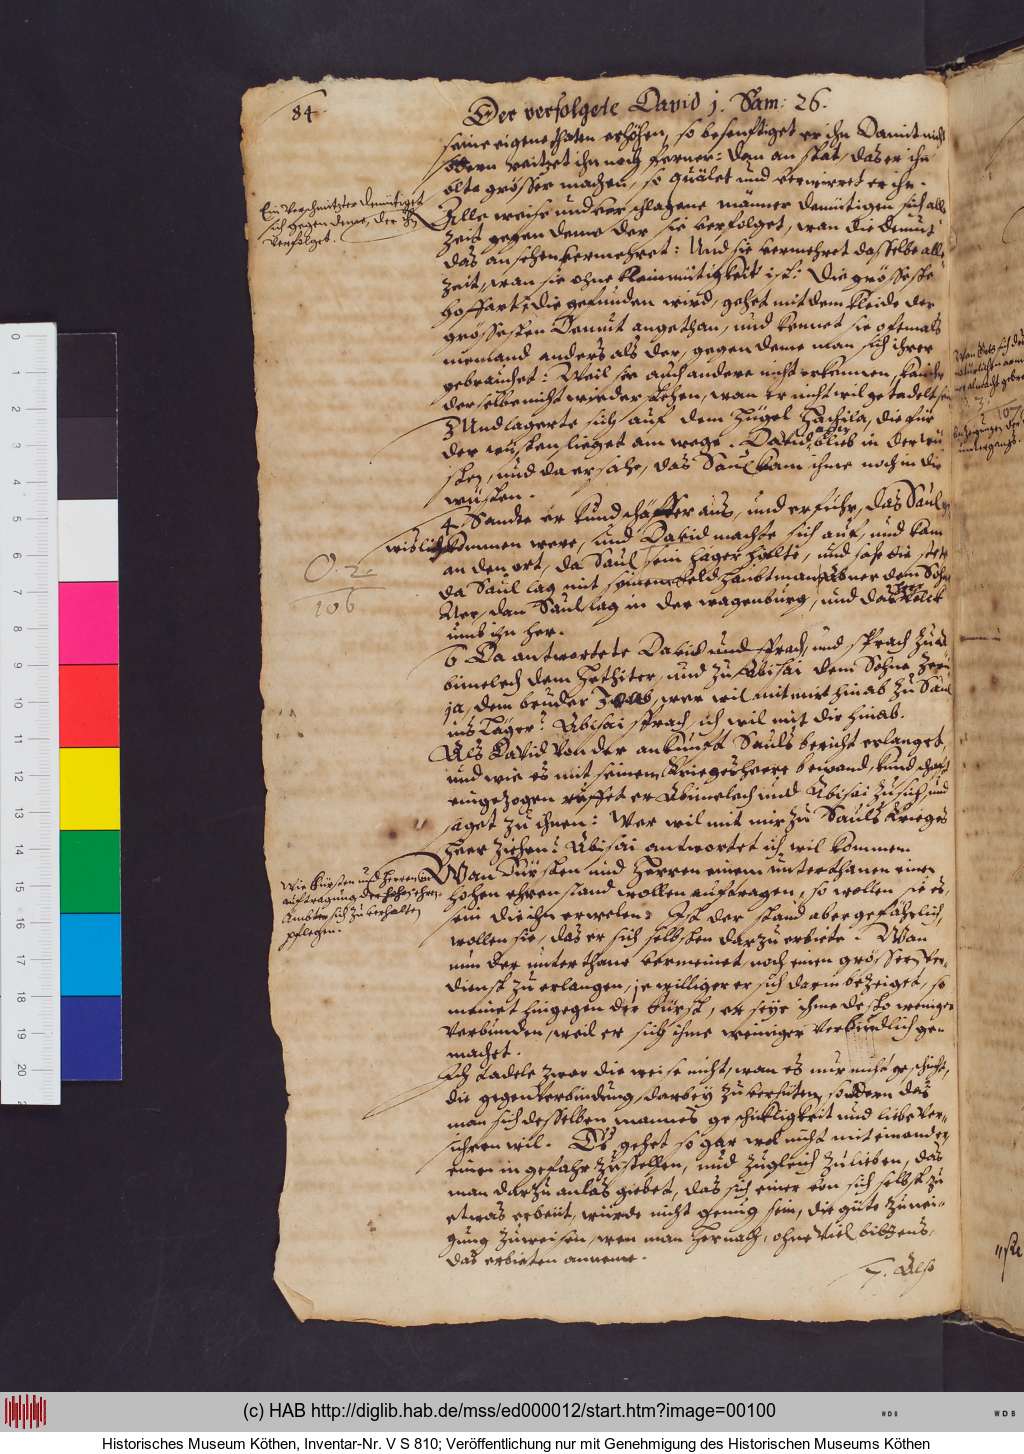 84
Der verfolgete David 1. Sam: 26.
seine eigene thaten erhöhen, so besenftiget er ihn damit nicht
sondern reitzet ihn noch ferner: dan an stat, das er ihn
solte grösser machen, so quälet und verwirret er ihn.
Ein verschmitzter demütiget
sich gegen deme, der ihn
verfolget.
Alle weise und verschlagene männer demütigen sich alle
zeit gegen deme der sie verfolget, wan die demut
das ansehen vermehret: Und sie vermehret dasselbe alle
zeit, wan sie ohne kleinmütigkeit ist: Die grösseste
hoffart, die gefunden wird, gehet mit dem kleide der
grössesten Demut angethan, und kennet sie oftmals
niemand anders als der, gegen deme man sich ihrer
gebrauchet: Weil sie auch andere nicht erkennen, kan ihr
derselbe nicht wiederstehen, wan er nicht wil getadelt sein
3 Und lagerte sich auf dem Hügel Hachila, die für
der wüsten lieget am wege. David aber blieb in der wü
sten, und da er sahe, das Saul kam ihme nach in die
wüsten.
4 Sandte er kundschaffer aus, und erfuhr, das Saul
wislich kommen were, und David machte sich auf, und kam
an den ort, da Saul sein Läger hielte, und sahe die stete
da Saul lag mit seinem Feldhaubtman Abner dem Sohn
Ner, dan Saul lag in der wagenburg, und das Volck
umb ihn her.
O. 2.
106
6 Da antwortete David und sprach zu A
bimelech dem Hethiter, und zu Abisai dem Sohne Zeru
ja, dem bruder Joab, wer wil mit mir hinab zu Saul
ins Läger? Abisai sprach, ich wil mit dir hinab.
Als David von der ankunft Sauls bericht erlanget,
und wie es mit seinem Kriegesheere bewand, kundschaft
eingezogen ruffet er Abimelech und Abisai zu sich und
saget zu ihnen: Wer wil mit mir zu Sauls Krieges
Heer ziehen? Abisai antwortet ich wil kommen
Wie Fürsten und Herren in
auftragung der hohen ehren
Ämbter sich zu verhalten
pflegen.
Wan Fürsten und Herren einem unterthanen einen
hohen ehrenstand wollen auftragen, so wollen sie es
sein die ihn erwelen: Ist der stand aber gefährlich,
wollen sie, das er sich selbsten darzu erbiete. Wan
nun der unterthane vermeinet noch einen grössern ver-
dienst zu erlangen, je williger er sich darin bezeiget, so
meinet hingegen der Fürst, er seye ihme desto weniger
verbunden, weil er sich ihme weiniger verbundlich ge
machet.
Ich tadele zwar die weise nicht, wan es nur nicht geschicht,
die gegenverbindung darbey zu verhüten, sondern das
man sich desselben mannes geschickligkeit und liebe ver-
sichern wil. Es gehet so gar wol nicht mit einander
einen in gefahr zu stellen, und zugleich zu lieben, das
man darzu anlas giebet, das sich einer von sich selbst zu
etwas erbeut, würde nicht genug sein, die gute zunei-
gung zu weisen, wen man hernach, ohne viel bittens,
das erbieten anneme.
7. Also
(c) HAB http://diglib.hab.de/mss/ed000012/start.htm?image=00100
Historisches Museum Köthen, Inventar-Nr. V S 810; Veröffentlichung nur mit Genehmigung des Historischen Museums Köthen